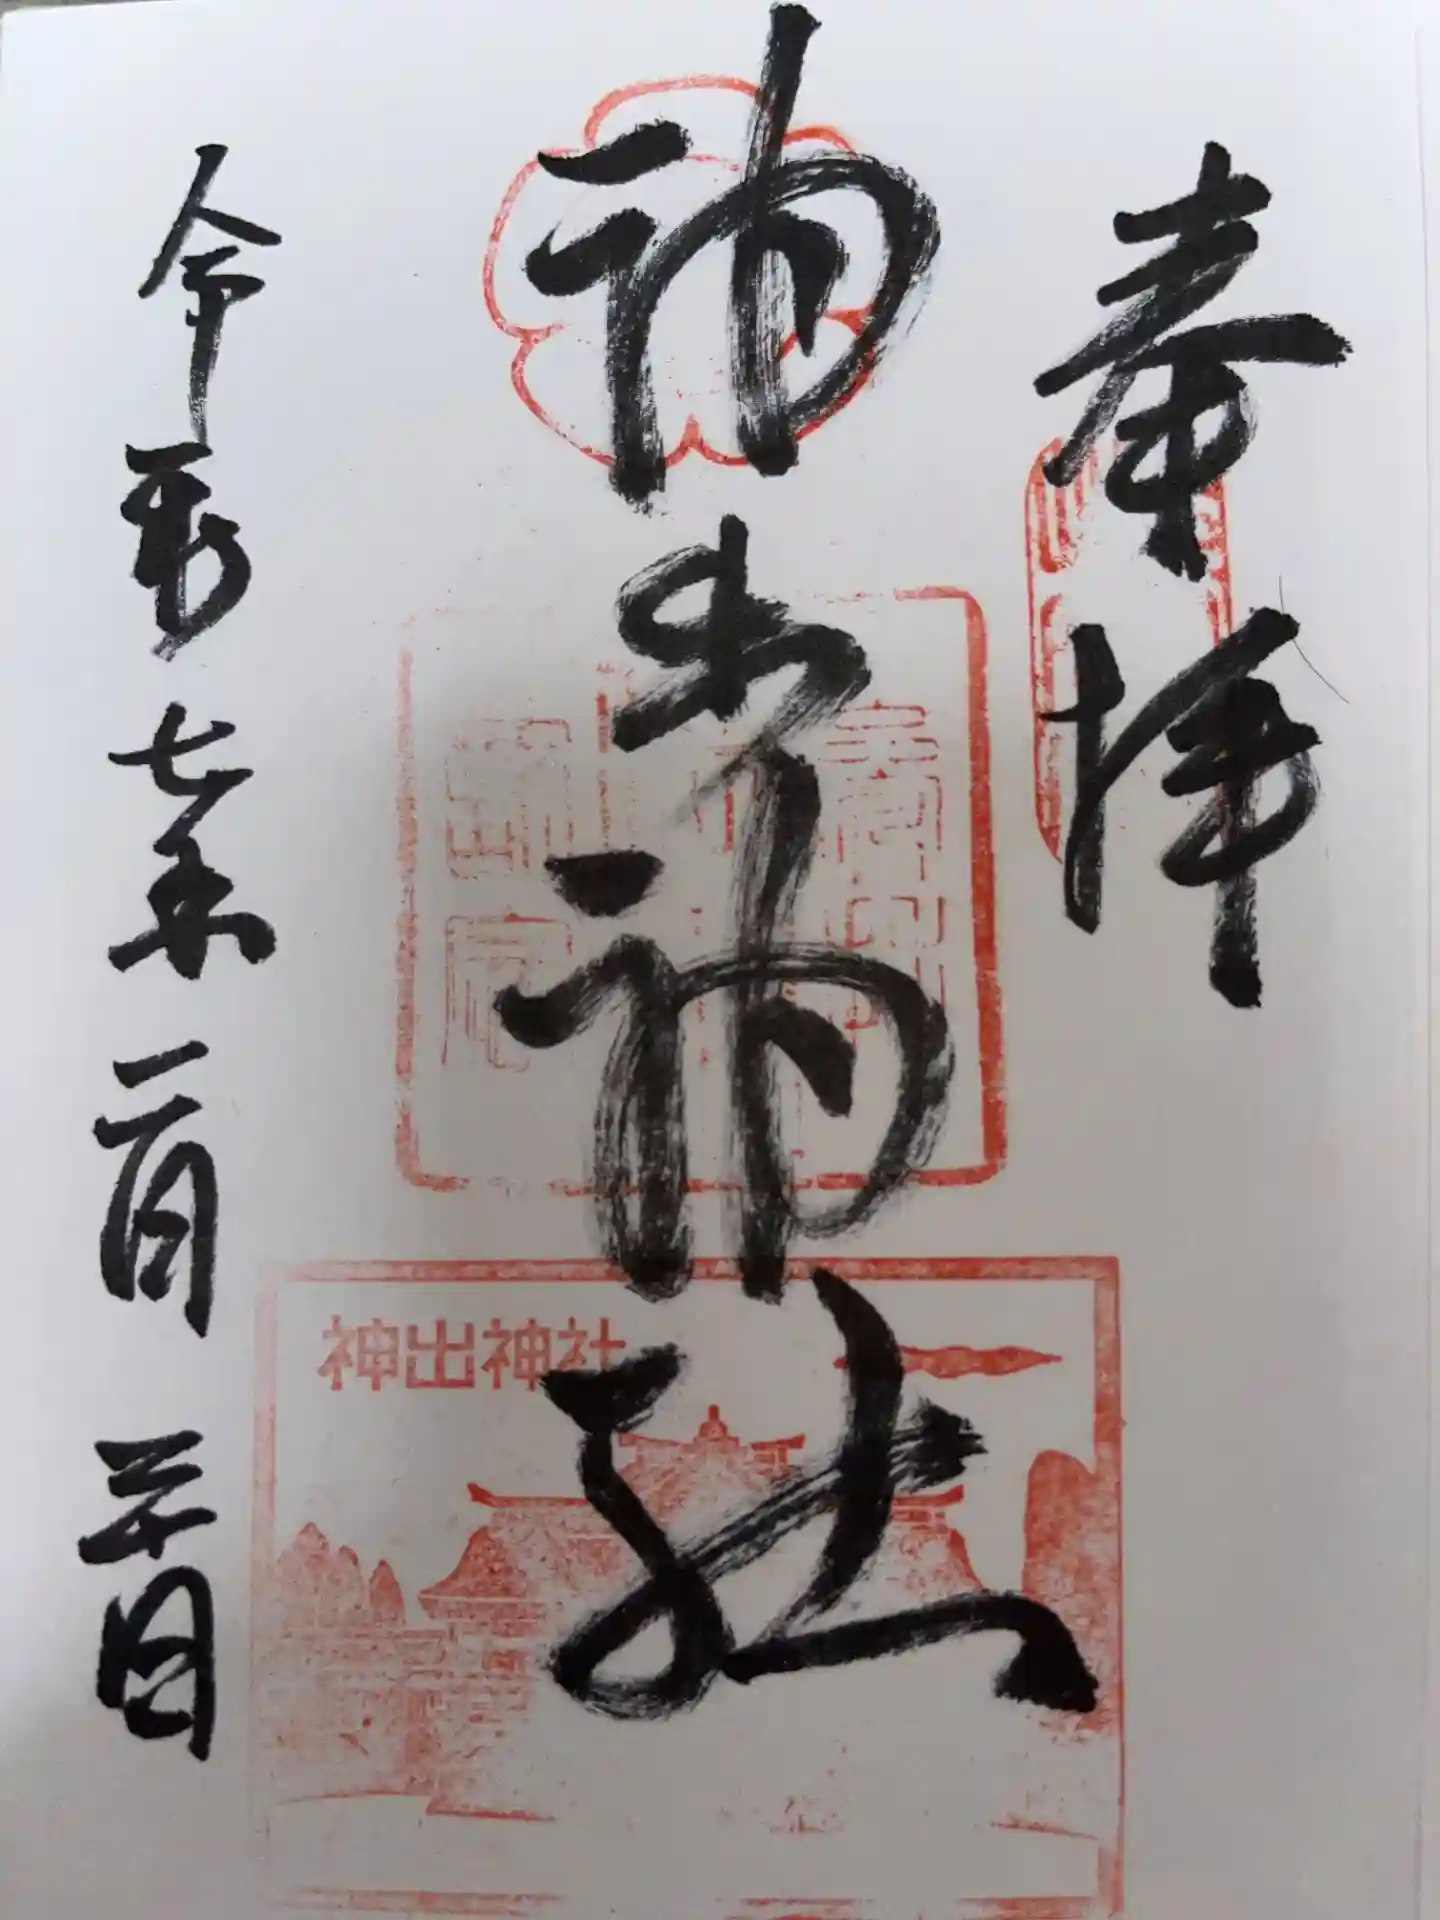 奉拝
神出神社
神出神社
令和七年二月